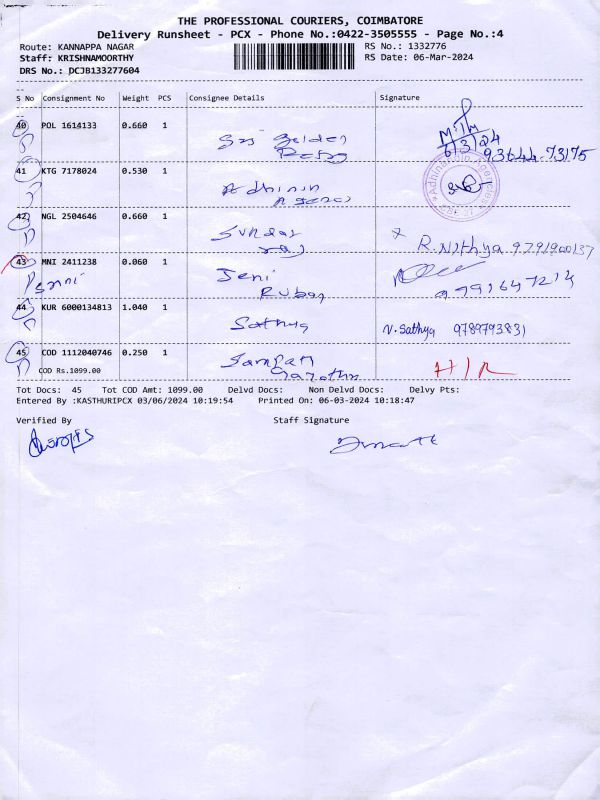 THE PROFESSIONAL COURIERS, COIMBATORE
Delivery Runsheet - PCX - Phone No.:0422-3505555 - Page No.:4
Route: KANNAPPA NAGAR
RS No.: 1332776
Staff: KRISHNAMOORTHY
RS Date: 06-Mar-2024
DRS No.: DCJB133277604
S No Consignment No Weight PCS Consignee Details Signature
40 POL 1614133 0.660 1
6/3/24
93644-73175
41 KTG 7178024 0.530 1
42 NGL 2504646 0.660 1 Sundar raj
R. Nithya 9791900137
43 MNI 2411238 0.060 1 Jeni
44 KUR 6000134813 1.040 1 Sathya V. Sathya 978979383)
45 COD 1112040746 0.250 1
COD Rs.1099.00
Tot Docs: 45 Tot COD Amt: 1099.00 Delvd Docs: Non Delvd Docs: Delvy Pts:
Entered By :KASTHURIPCX 03/06/2024 10:19:54 Printed On: 06-03-2024 10:18:47
Verified By Staff Signature